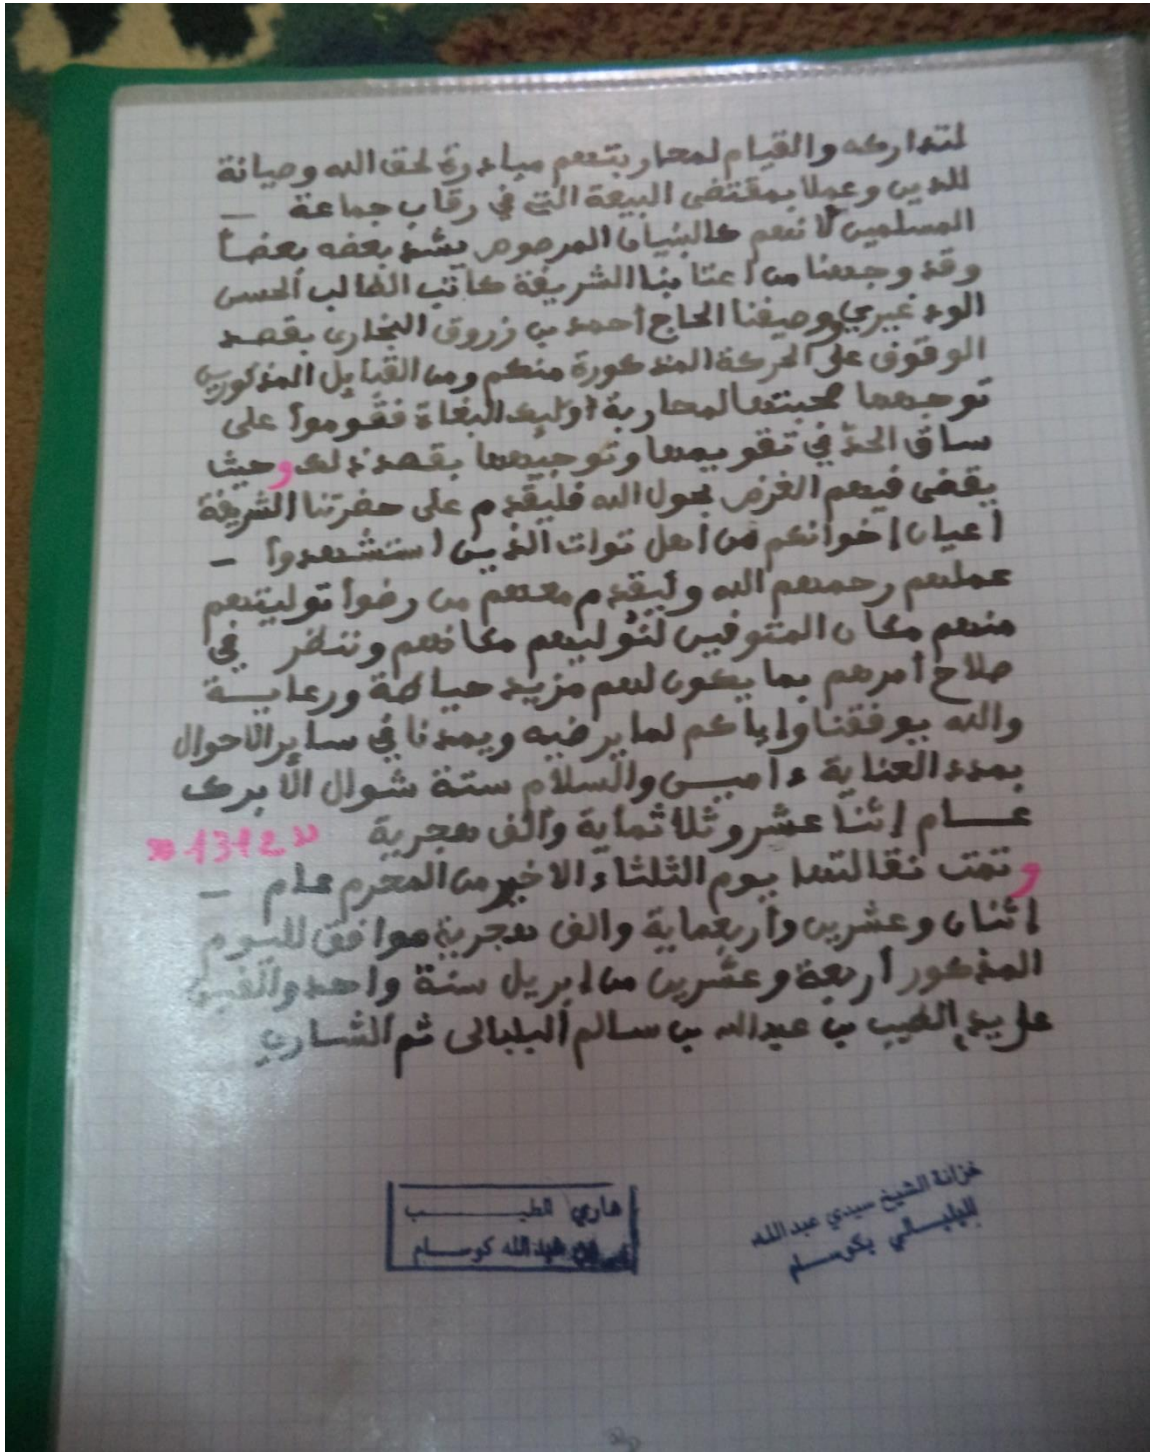 لتداركه والقيام لمحاربتهم مبادرة لحق الله وصيانة
للدين وعملا بمقتضى البيعة التي في رقاب جماعة –
المسلمين لأنهم كالبنيان المرصوص يشد بعضه بعضاً
وقد وجهنا من أعتابنا الشريفة كاتب الطالب الحسن
الودغيري وصيفنا الحاج أحمد بن زروق البخاري بقصد
الوقوف على الحركة المذكورة منكم ومن القبايل المذكورين
توجهها صحبتهما لمحاربة أوليك البغاة فقوموا على
ساق الجد في تقويمها وتوجيهها بقصد ذلك وحيث
يقضى فيهم الغرض بحول الله فليقدم على حضرتنا الشريفة
أعيان إخوانكم من أهل توات الذين استشهدوا –
عملهم رحمهم الله وليقدم معهم من رضوا توليتهم
منهم مكان المتوفين لنوليهم مكانهم وننظر في
صلاح أمرهم بما يكون لهم مزيد حياطة ورعايــة
والله يوفقنا وإياكم لما يرضيه ويمدنا في ساير الاحوال
بمدد العناية ءاميــن والسلام ستة شوال الأبرك
عــام إثنا عشر وثلاثماية وألف هجرية 1312
وتمت نقالتها يوم الثلثاء الاخير من المحرم عام –
إثنان وعشرين وأربعماية والف هجرية موافق لليوم
المذكور أربعة وعشرين من ابريل سنة واحد وألفين
على يد الطيب بن عبدالله بن سالم البلبالى ثم الشاري
خزانة الشيخ سيدي عبد الله
البلبــالي بكوســام
شاري الطيــب
عبدالله كوســام